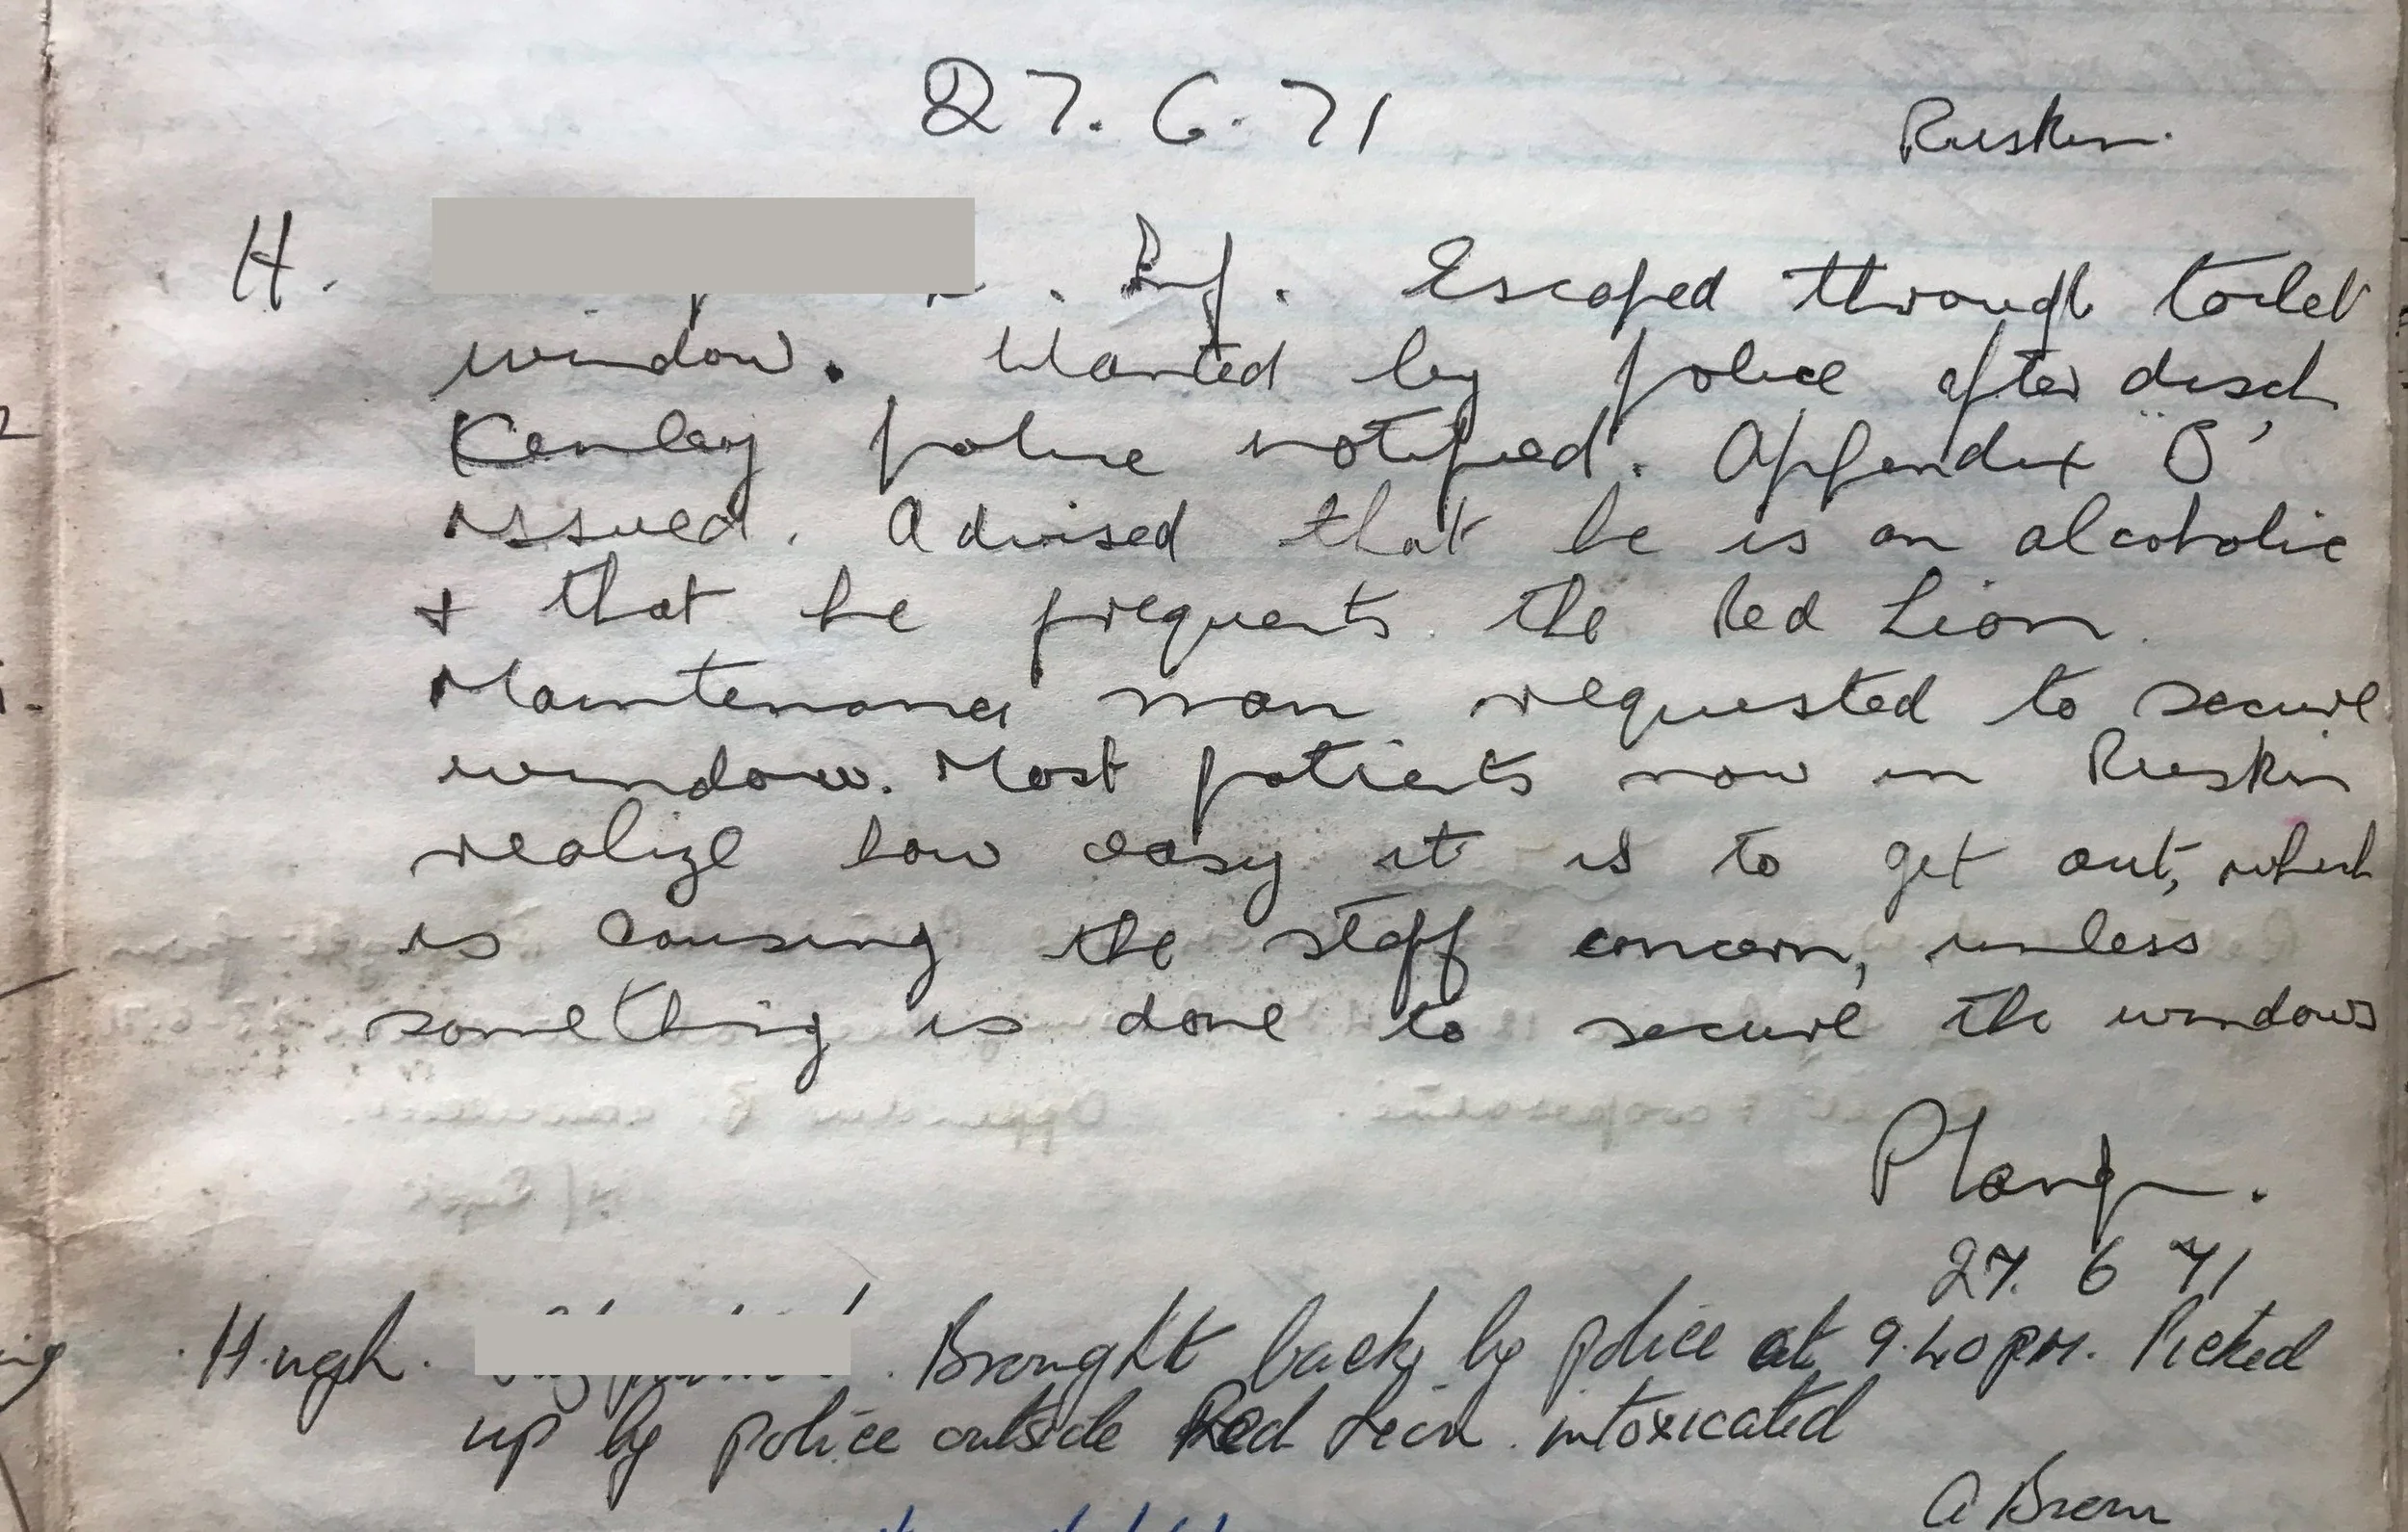 27.6.71
Ruskin.
H. . Inf. Escaped through toilet
window. Wanted by police after disch
Kenley police notified. Appendix "B'
issued. Advised that he is an alcoholic
+ that he frequents the Red Lion.
Maintenance man requested to secure
window. Most patients now in Ruskin
realize how easy it is to get out, which
is causing the staff concern, unless
something is done to secure the windows
27. 6 71
Hugh. . Brought back by police at 9.40 PM. Picked
up by police outside Red Lion. intoxicated
A Brown